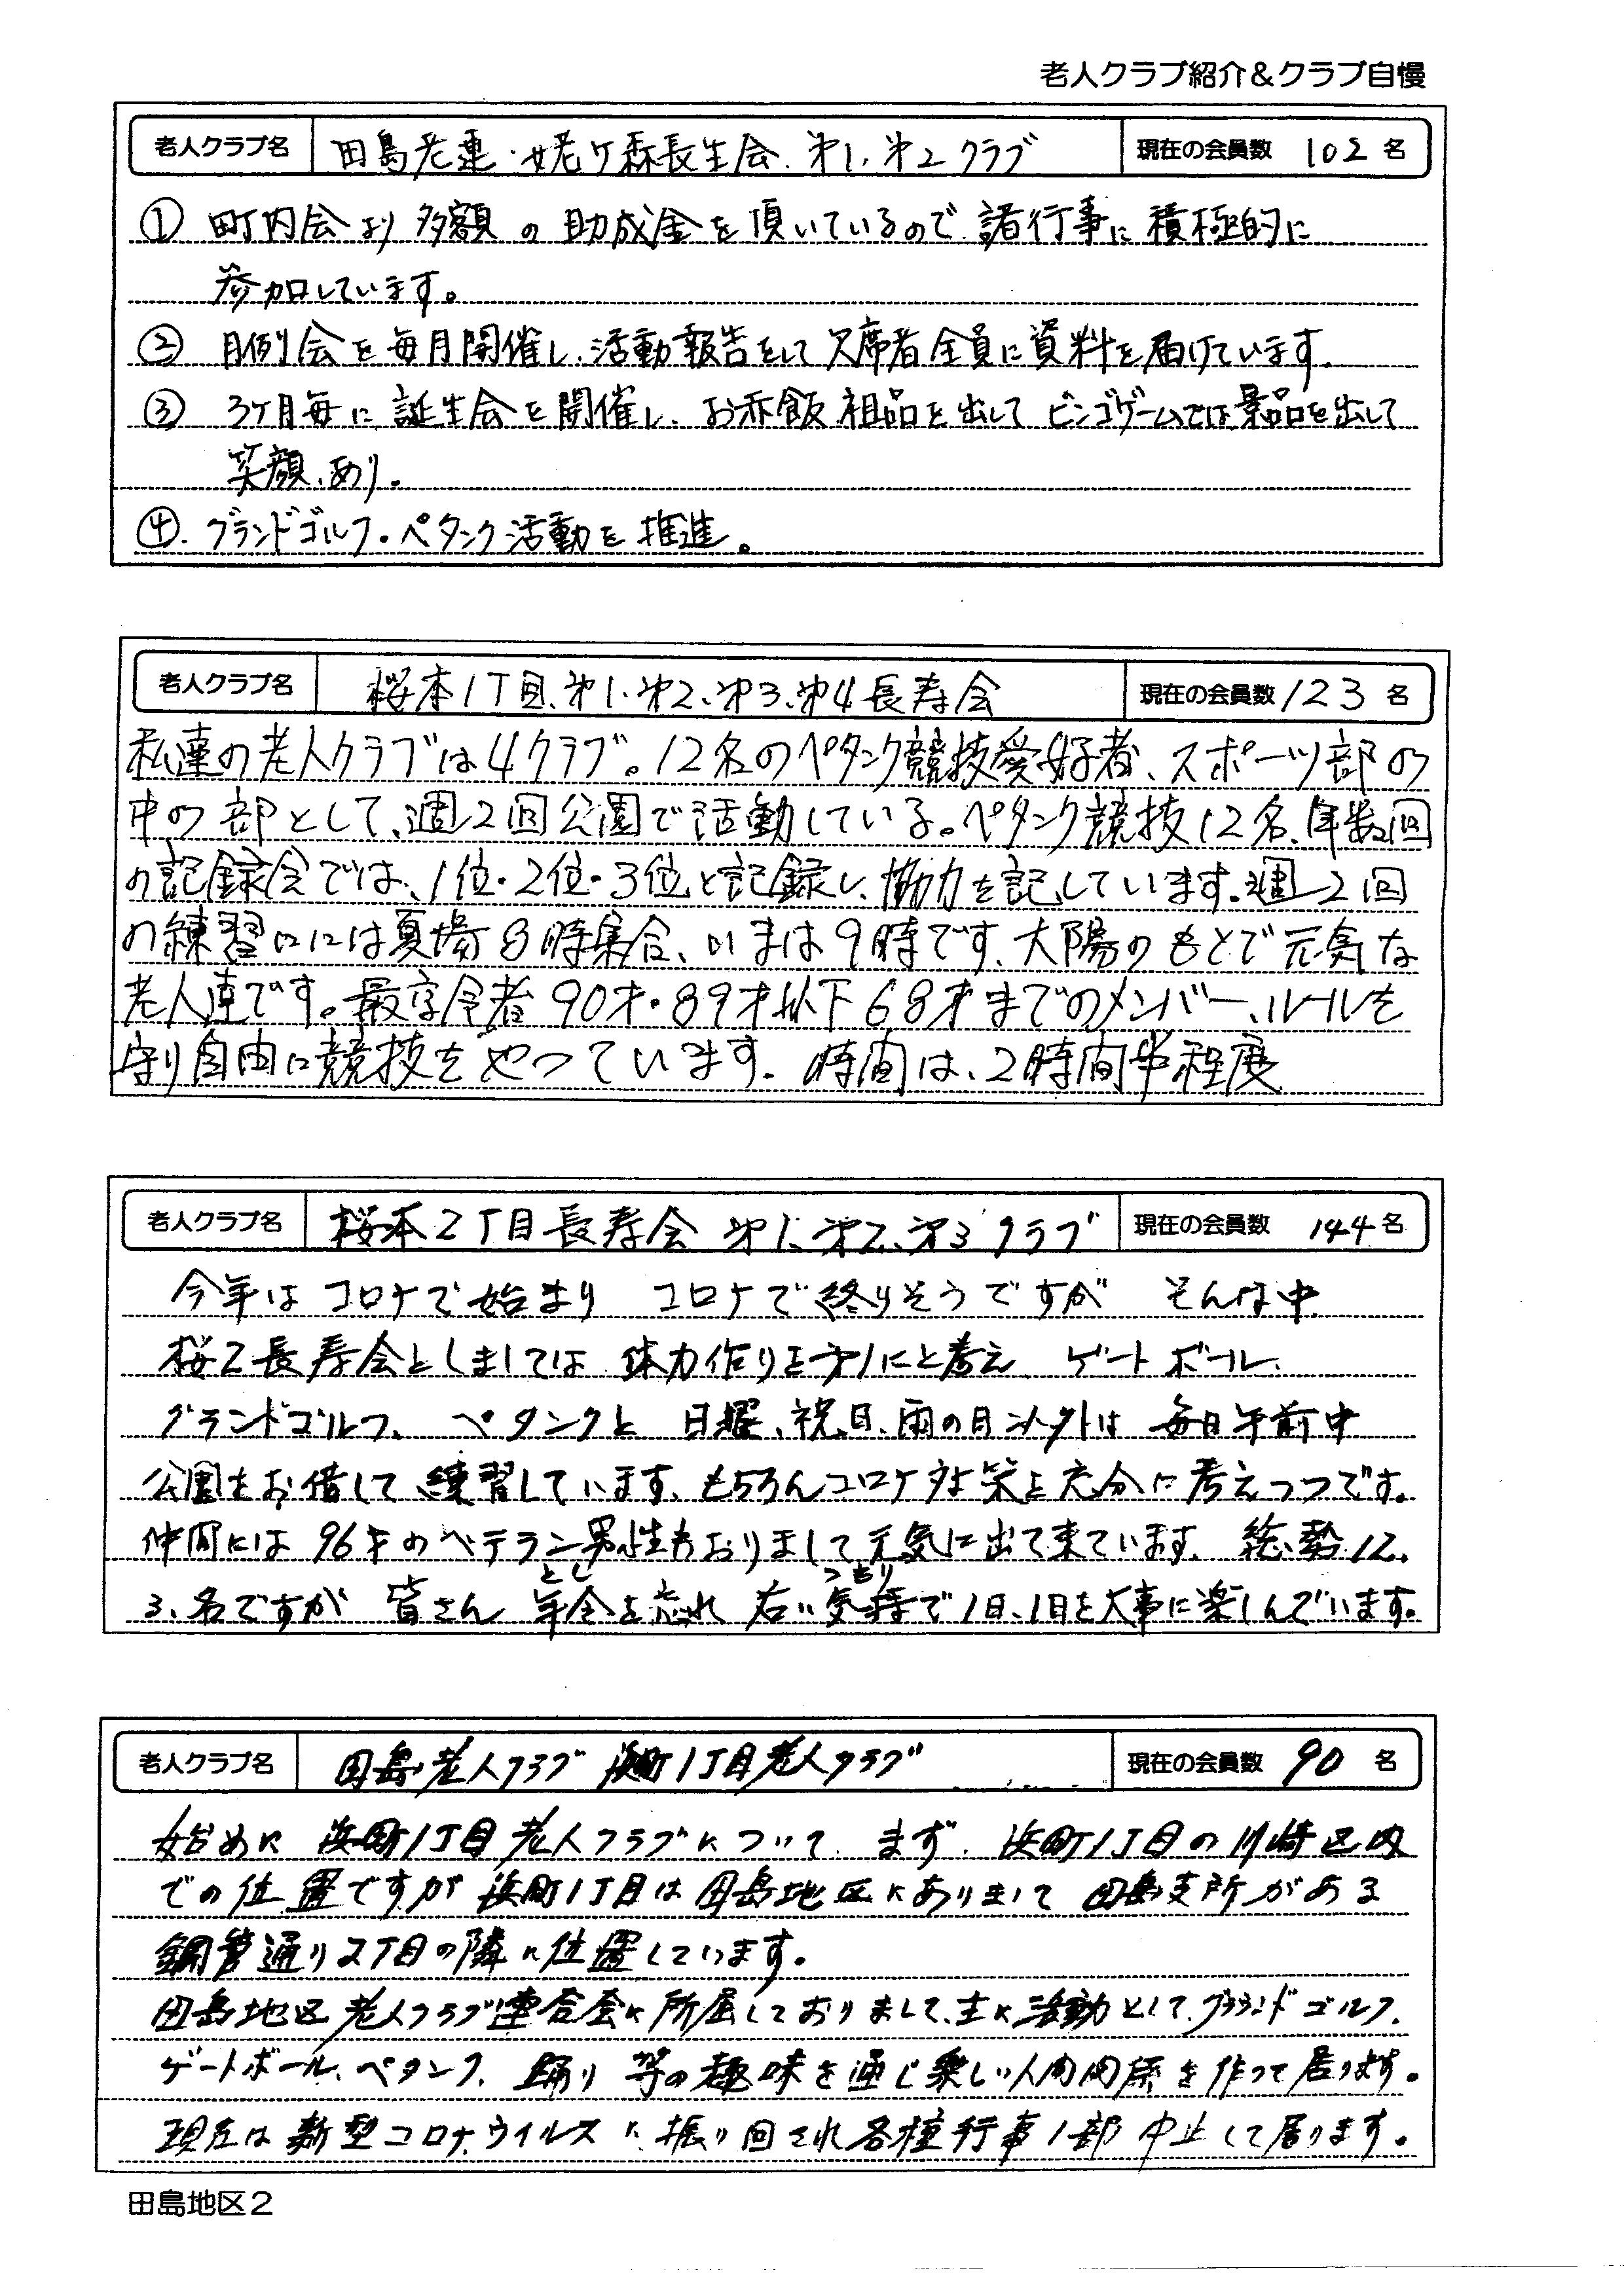 老人クラブ紹介&クラブ自慢
老人クラブ名 田島老連・姥ケ森長生会、才1、才2クラブ 現在の会員数 102 名
① 町内会より多額の助成金を頂いているので諸行事に積極的に
参加しています。
② 月例会を毎月開催し、活動報告をして欠席者全員に資料を届けています。
③ 3ケ月毎に誕生会を開催し、お赤飯、粗品を出してビンゴゲームでは景品を出して
笑顔、あり。
④. グランドゴルフ・ペタンク活動を推進。
老人クラブ名 桜本1丁目、才1、才2、才3、才4長寿会 現在の会員数 123 名
私達の老人クラブは4クラブ。12名のペタンク競技愛好者、スポーツ部の
中の部として、週2回公園で活動している。ペタンク競技12名、年数回
の記録会では、1位・2位・3位と記録し、協力を記しています。週2回
の練習日には夏場8時集合、いまは9時です、太陽のもとで元気な
老人達です。最高令者90才・89才以下68才までのメンバー、ルールを
守り自由に競技をやっています。時間は、2時間半程度
老人クラブ名 桜本2丁目長寿会 才1、才2、才3クラブ 現在の会員数 144 名
今年はコロナで始まり コロナで終りそうですが そんな中
桜2長寿会としましては 体力作りを才1にと考え ゲートボール、
グランドゴルフ、ペタンクと 日曜、祝日、雨の日以外は 毎日午前中
公園をお借して、練習しています、もちろんコロナ対策と充分に考えつつです。
仲間には 96才のベテラン男性もおりまして元気に出て来ています、総勢12、
3、名ですが 皆さん 年令(とし)を忘れ 若い気持(つもり)で1日、1日を大事に楽しんでいます。
老人クラブ名 田島老人クラブ 浜町1丁目老人クラブ 現在の会員数 90 名
始めに 浜町1丁目老人クラブについて、まず、浜町1丁目の川崎区内
での位置ですが 浜町1丁目は田島地区にありまして 田島支所がある
鋼管通り2丁目の隣に位置しています。
田島地区老人クラブ連合会に所属しておりまして、主に活動として、グランドゴルフ、
ゲートボール、ペタンク、踊り 等の趣味を通じ楽しい人間関係を作って居ります。
現在は新型コロナ、ウイルスに、振り回され各種行事1部中止して居ります。
田島地区2